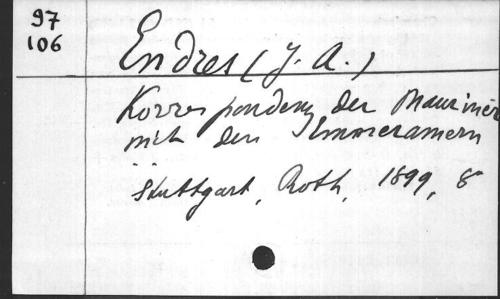 97
106
Endres (J. A.)
Korrespondenz der Mauriner
mit den Emmeramern
Stuttgart, Roth, 1899, 8°